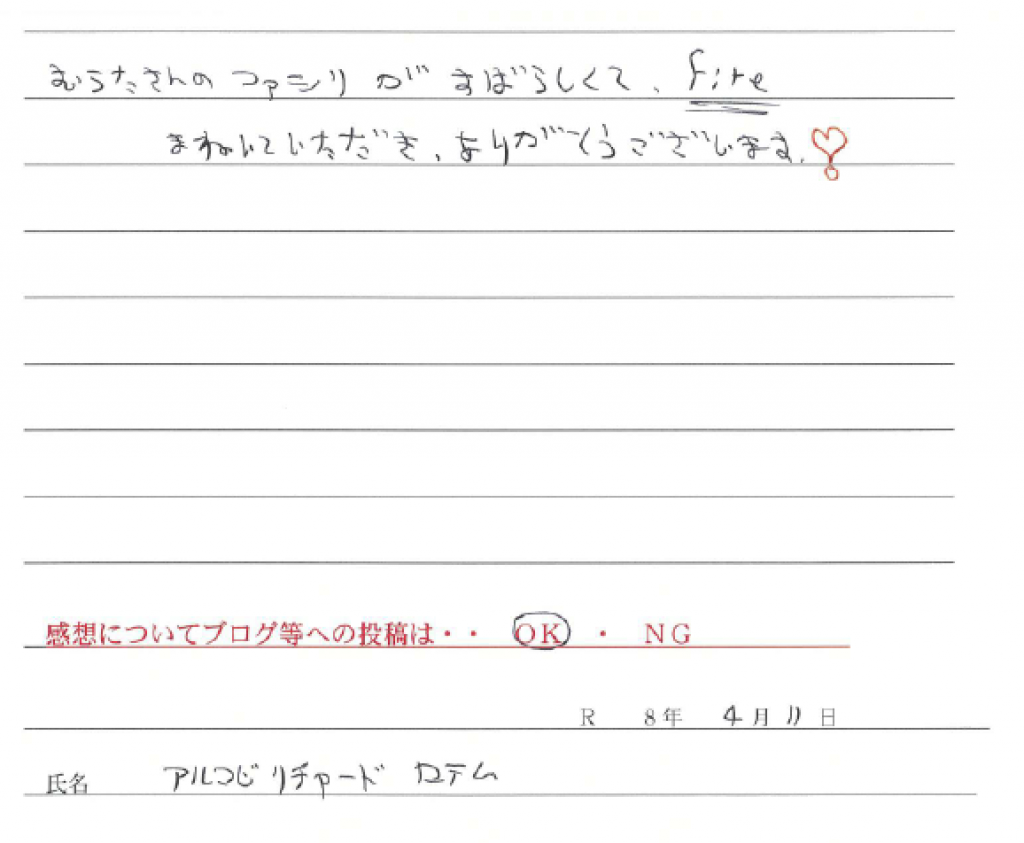 むらたさんの ファミリが すばらしくて、fire
まねいていただき、ありがとうございます。
感想についてブログ等への投稿は・・ OK ・ NG
R 8年 4月 11日
氏名 アルコビリチャード ロテム